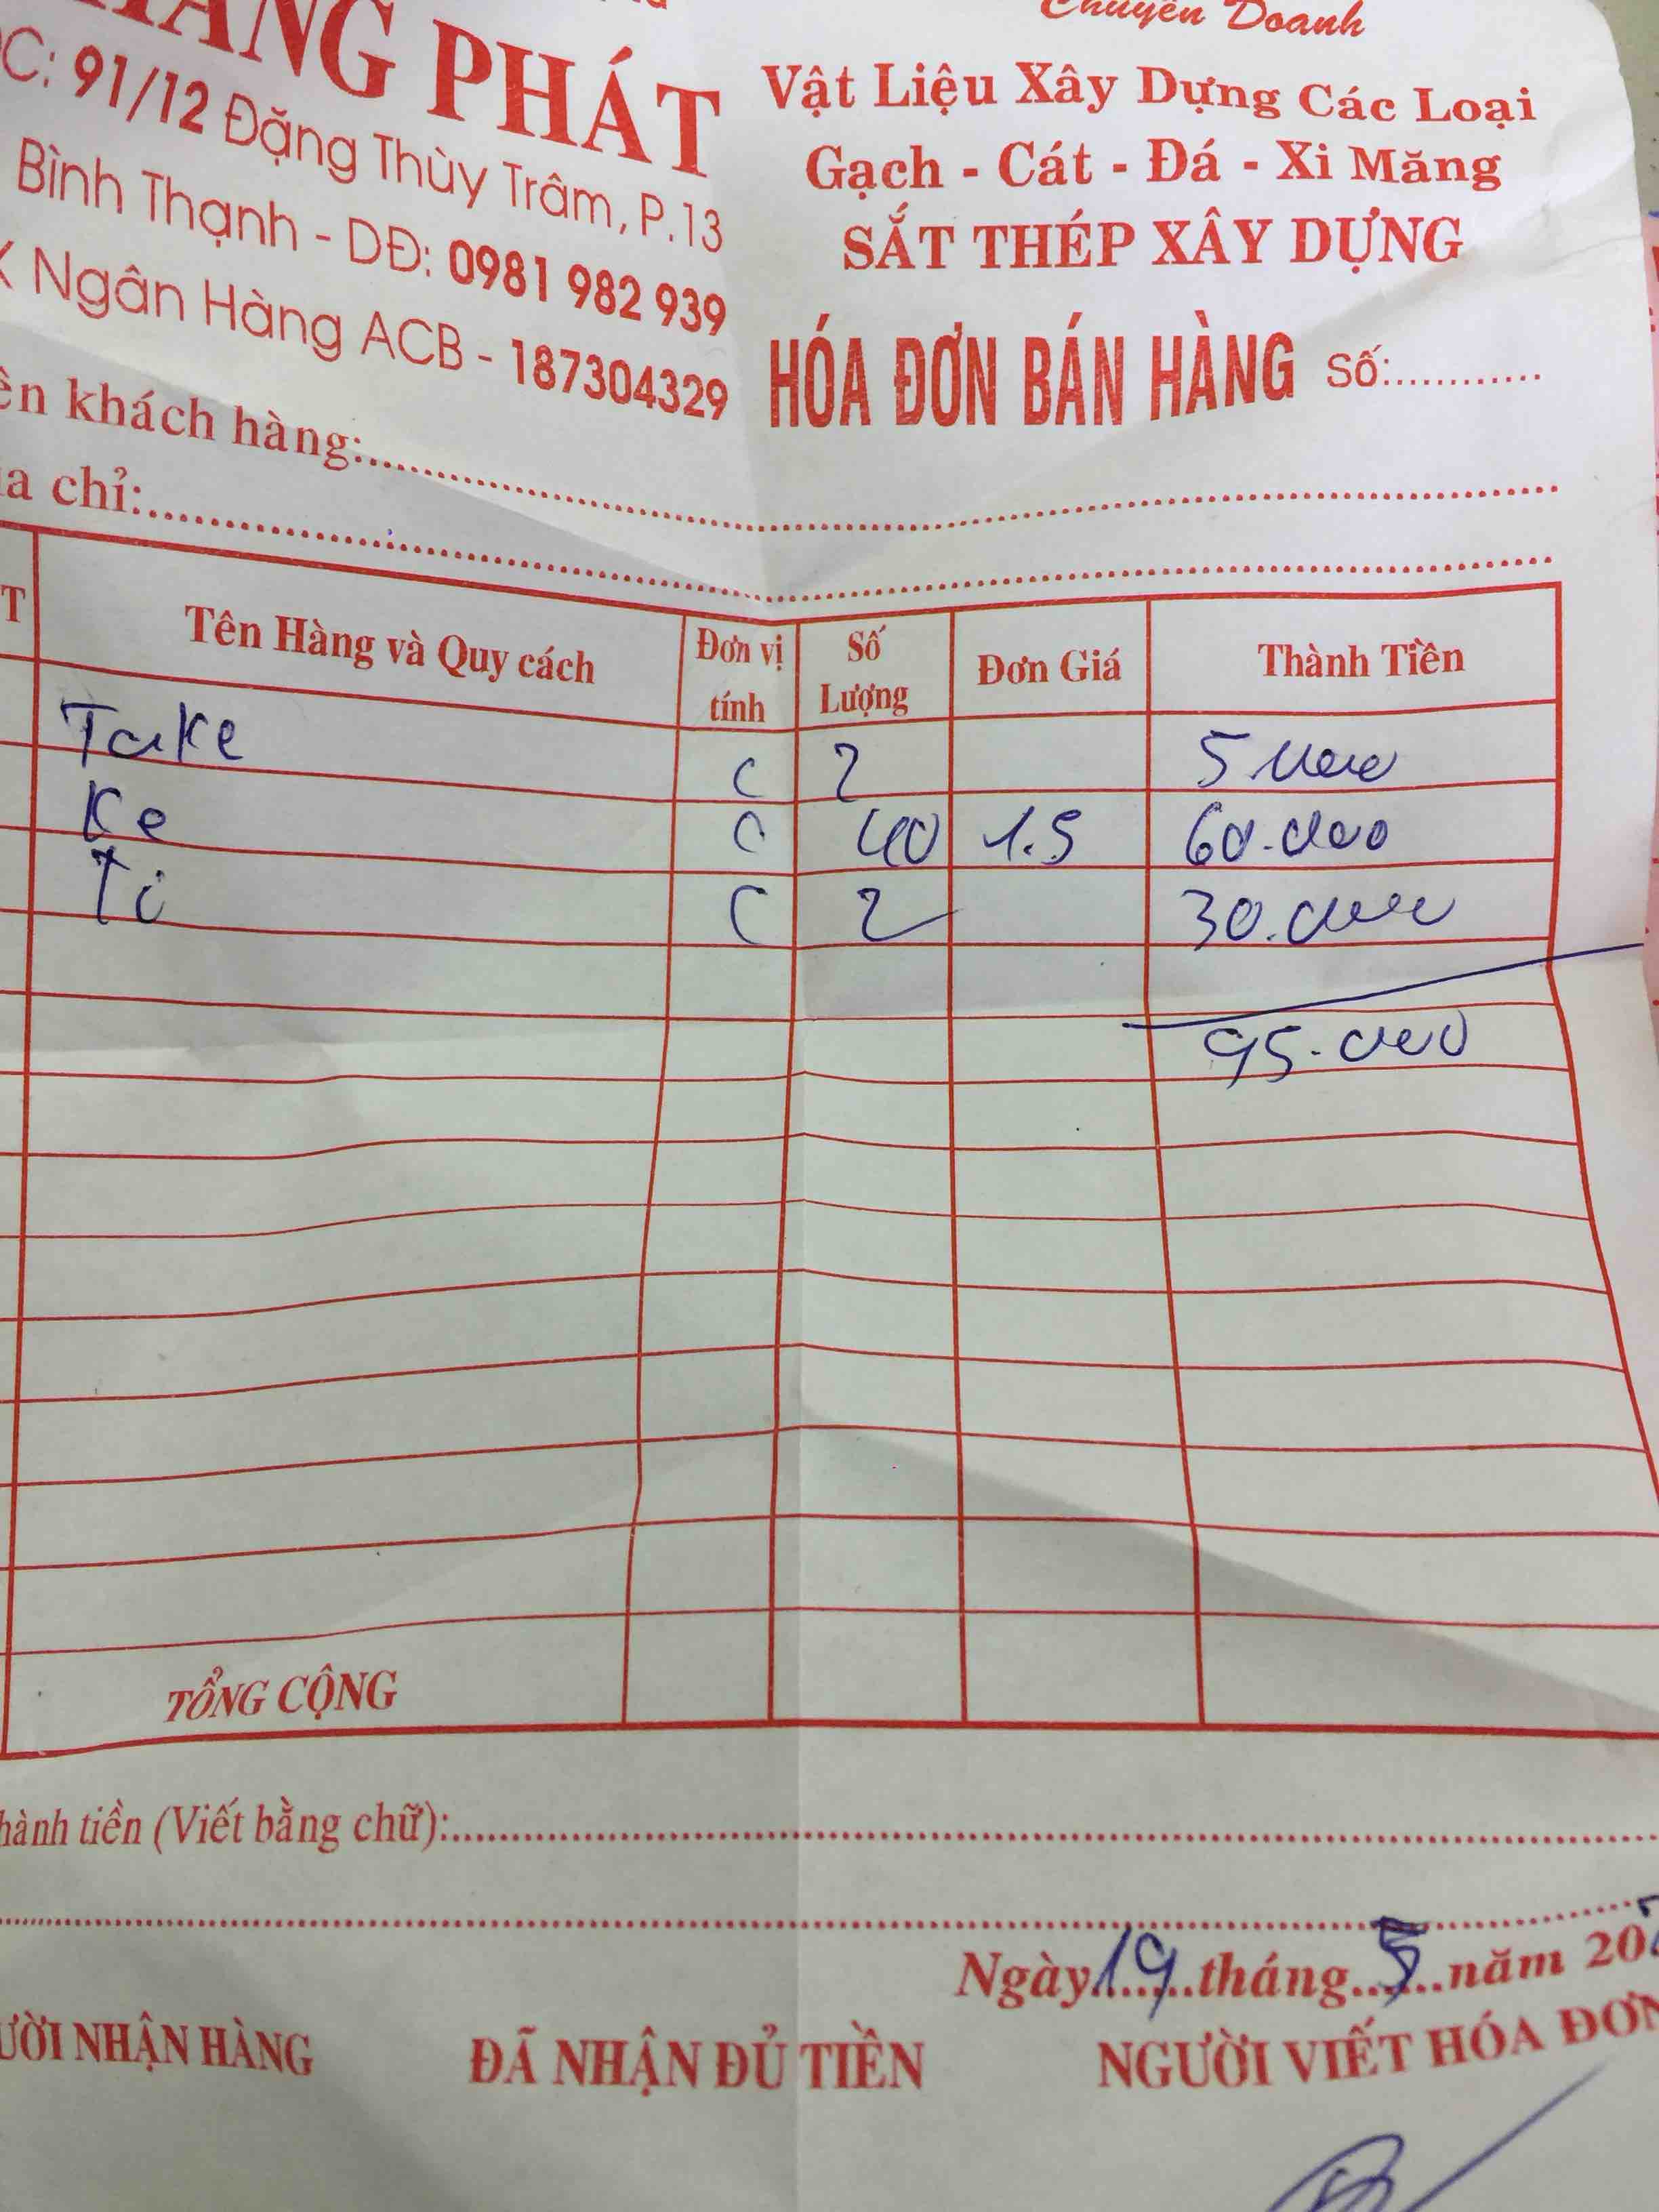 HÀNG PHÁT
ĐC: 91/12 Đặng Thùy Trâm, P.13
Bình Thạnh - DĐ: 0981 982 939
K Ngân Hàng ACB - 187304329
Chuyên Doanh
Vật Liệu Xây Dựng Các Loại
Gạch - Cát - Đá - Xi Măng
SẮT THÉP XÂY DỰNG
HÓA ĐƠN BÁN HÀNG Số:............
ên khách hàng:
ịa chỉ:
T Tên Hàng và Quy cách Đơn vị tính Số Lượng Đơn Giá Thành Tiền
Take C 2 5.000
Ke C 40 1.5 60.000
Ti C 2 30.000
95.000
TỔNG CỘNG
hành tiền (Viết bằng chữ):
Ngày 19 tháng 5 năm 202
ƯỜI NHẬN HÀNG ĐÃ NHẬN ĐỦ TIỀN NGƯỜI VIẾT HÓA ĐƠN